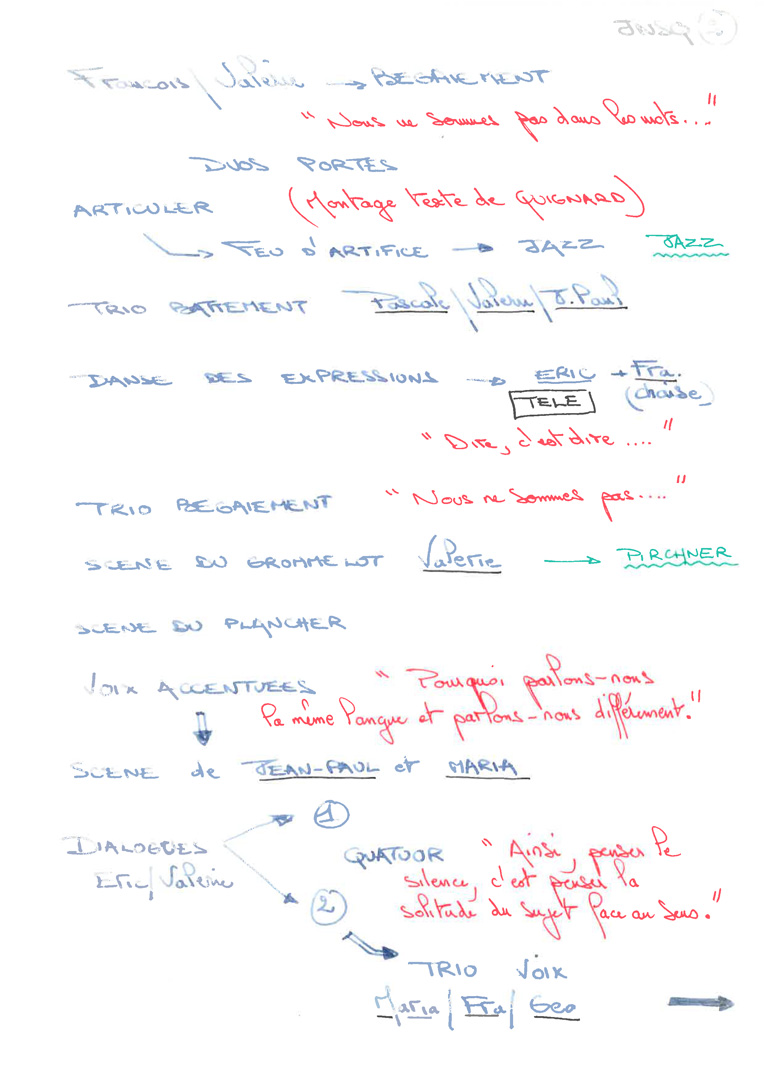 Francois / Valérie → BEGAIEMENT
" Nous ne sommes pas dans les mots..."
DUOS PORTES
ARTICULER (Montage texte de QUIGNARD)
→ FEU D'ARTIFICE → JAZZ JAZZ
TRIO BATTEMENT Pascale / Valérie / J. Paul
DANSE DES EXPRESSIONS → ERIC + Fra.
TELE (chaise)
" Dire, c'est dire ...."
TRIO BEGAIEMENT " Nous ne sommes pas...."
SCENE DU GROMMELOT Valérie → PIRCHNER
SCENE DU PLANCHER
VOIX ACCENTUEES " Pourquoi parlons-nous
la même langue et parlons-nous différemment."
SCENE de JEAN-PAUL et MARIA
1
DIALOGUES
Eric / Valérie
QUATUOR " Ainsi, penser le
silence, c'est penser la
2
solitude du sujet face au sens."
TRIO VOIX
Maria / Fra / Geo